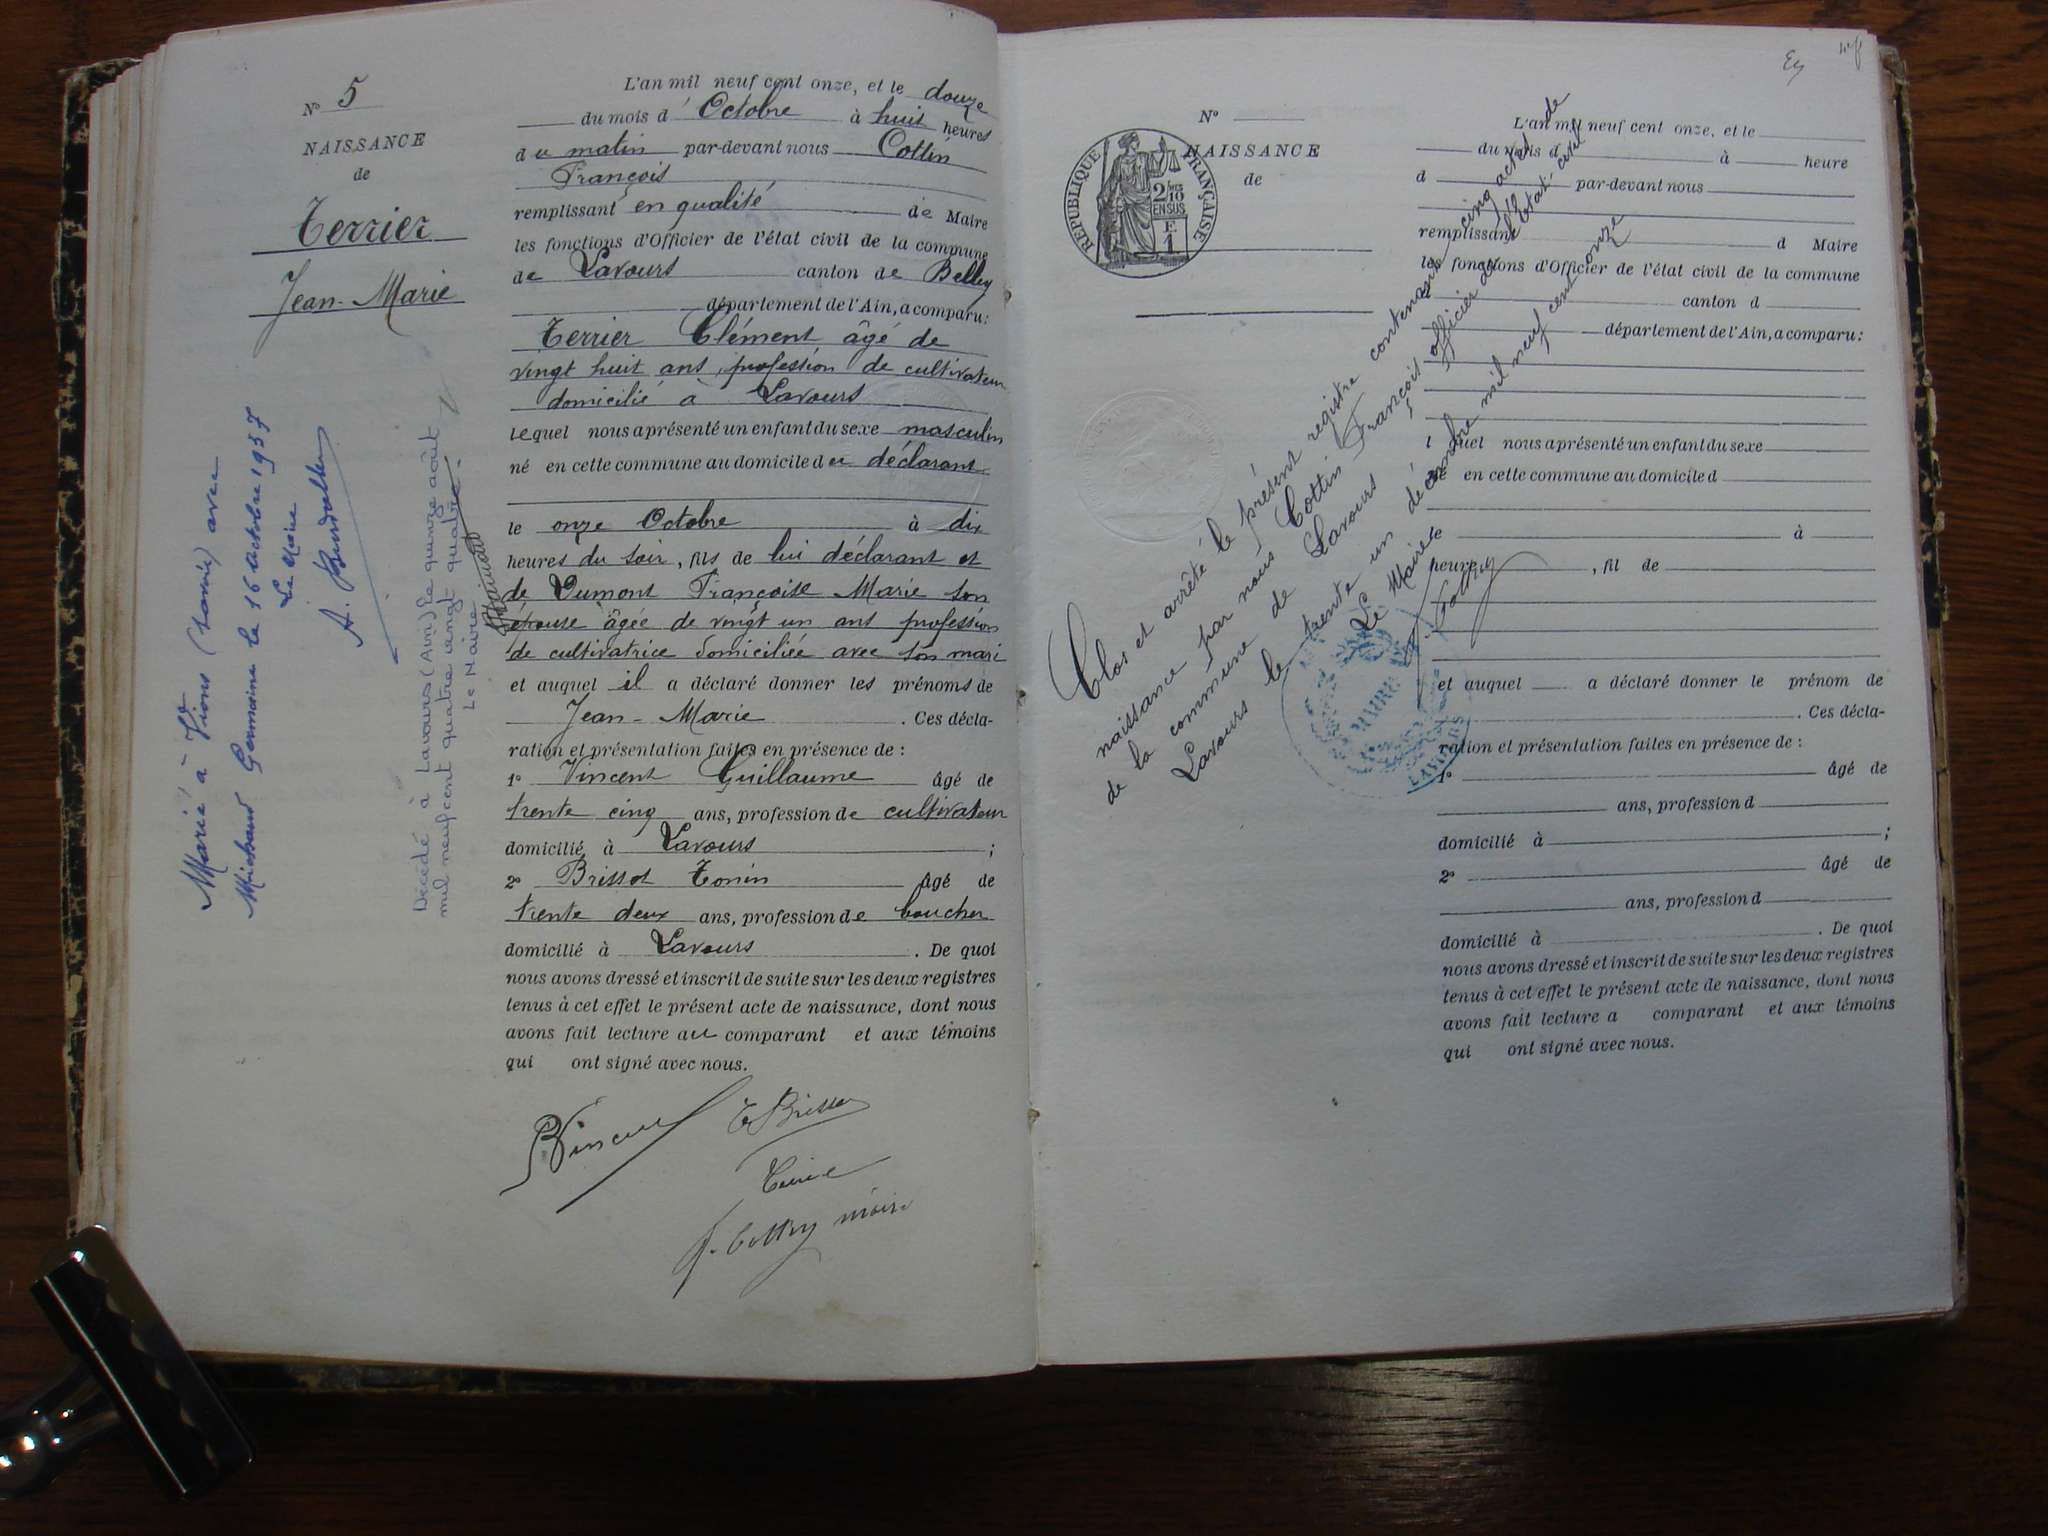 N° 5
NAISSANCE
de
Terrier
Jean-Marie
Marié à Vions (Savoie) avec
Michaud Germaine le 16 octobre 1937
Le Maire
Décédé à Lavours (Ain) le quinze août
mil neuf cent quatre vingt quatre.
Le Maire
L'an mil neuf cent onze, et le douze
du mois d' Octobre à huit heures
du matin par-devant nous Cottin
François
remplissant en qualité de Maire
les fonctions d'Officier de l'état civil de la commune
de Lavours canton de Belley
département de l'Ain, a comparu:
Terrier Clément âgé de
vingt huit ans, profession de cultivateur
domicilié à Lavours
lequel nous a présenté un enfant du sexe masculin
né en cette commune au domicile du déclarant
le onze Octobre à dix
heures du soir, fils de lui déclarant et
de Dumont Françoise Marie son
épouse âgée de vingt un ans profession
de cultivatrice domiciliée avec son mari
et auquel il a déclaré donner les prénoms de
Jean-Marie. Ces décla-
ration et présentation faites en présence de :
1° Vincent Guillaume âgé de
trente cinq ans, profession de cultivateur
domicilié à Lavours ;
2° Brissot Tonin âgé de
trente deux ans, profession de boucher
domicilié à Lavours . De quoi
nous avons dressé et inscrit de suite sur les deux registres
tenus à cet effet le présent acte de naissance, dont nous
avons fait lecture au comparant et aux témoins
qui ont signé avec nous.
maire
N°
NAISSANCE
de
REPUBLIQUE FRANÇAISE
2/10 EN SUS
E
1
L'an mil neuf cent onze, et le
du mois d à heure
d par-devant nous
remplissant d Maire
les fonctions d'Officier de l'état civil de la commune
d canton d
département de l'Ain, a comparu:
l quel nous a présenté un enfant du sexe
né en cette commune au domicile d
le à
heure , fil de
et auquel a déclaré donner le prénom de
. Ces décla-
ration et présentation faites en présence de :
1° âgé de
ans, profession d
domicilié à ;
2° âgé de
ans, profession d
domicilié à . De quoi
nous avons dressé et inscrit de suite sur les deux registres
tenus à cet effet le présent acte de naissance, dont nous
avons fait lecture a comparant et aux témoins
qui ont signé avec nous.
Clos et arrêté le présent registre contenant cinq actes de
naissance par nous Cottin François officier de l'état-civil
de la commune de Lavours
Lavours le trente un décembre mil neuf cent onze
Le Maire
MAIRIE
LAVOURS